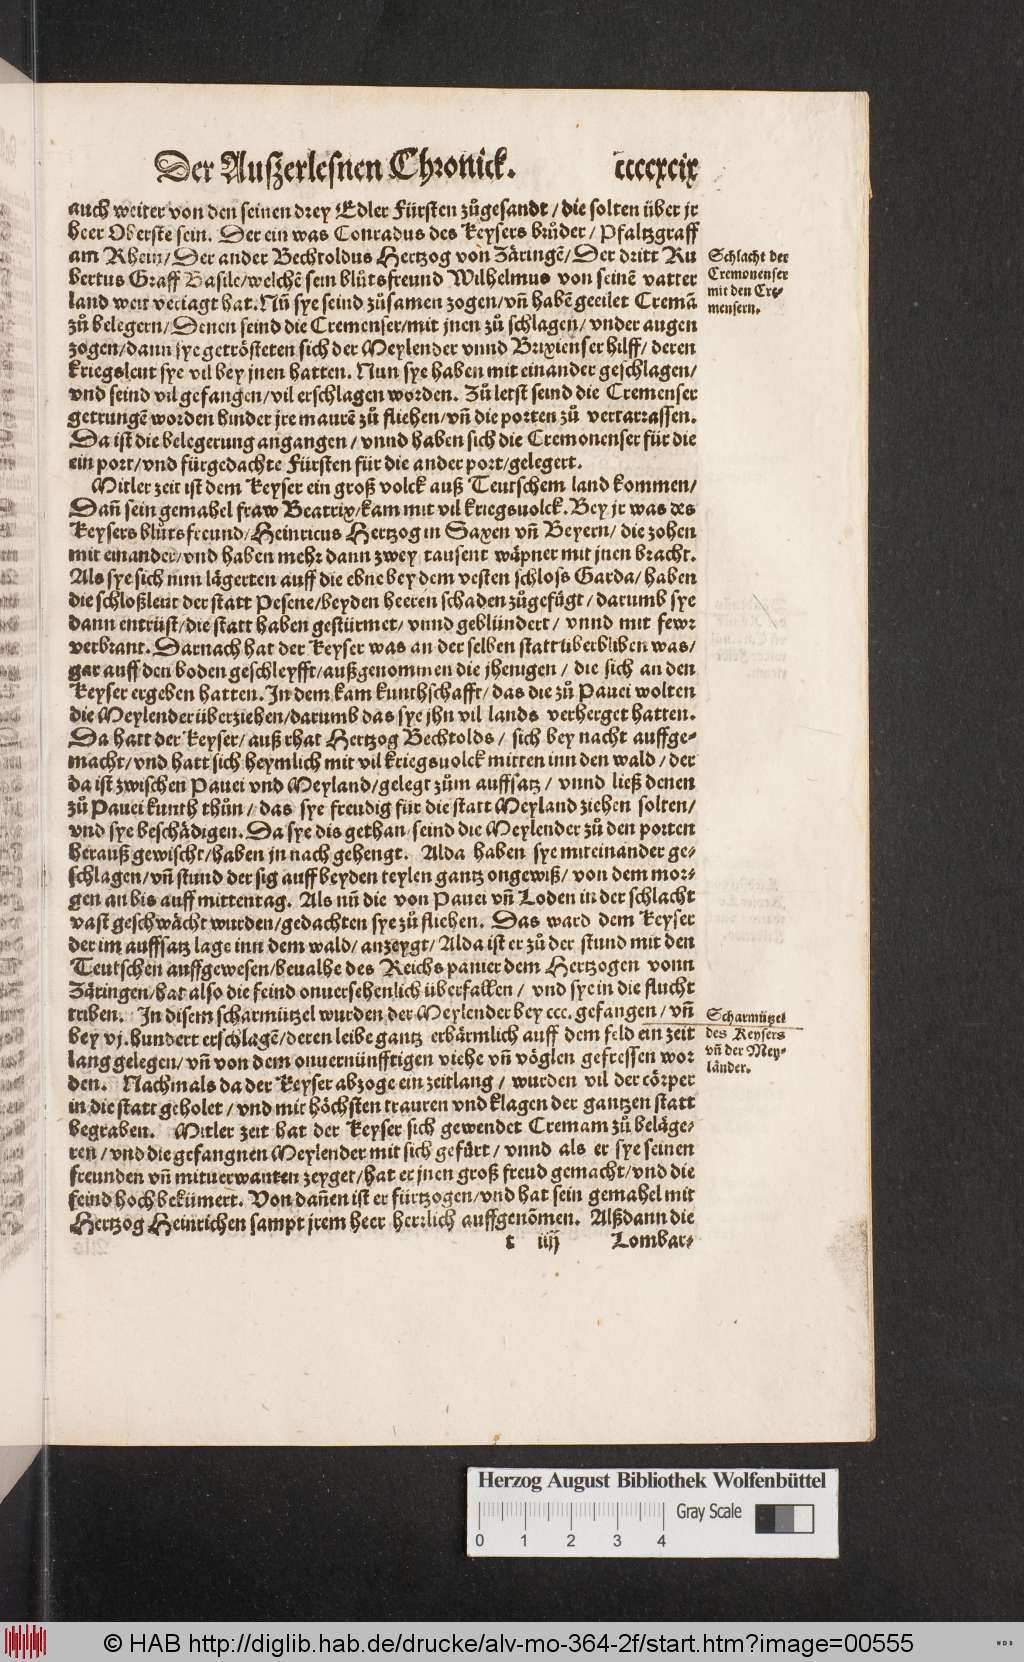 Der Auſzerleſnen Chronick. ccccxcix
auch weiter von den ſeinen drey Edler Fürſten zůgeſandt / die ſolten über jr
heer Oberſte ſein. Der ein was Conradus des Keyſers brůder / Pfaltzgraff
am Rhein / Der ander Bechtoldus Hertzog von Zäringẽ / Der dritt Ru
bertus Graff Baſile / welchẽ ſein blůtsfreund Wilhelmus von ſeinẽ vatter
land weit veriagt hat. Nũ ſye ſeind zůſamen zogen / vñ habẽ geeilet Cremã
zů belegern / Denen ſeind die Cremenſer / mit jnen zů ſchlagen / vnder augen
zogen / dann ſye getröſteten ſich der Meylender vnnd Brixienſer hilff / deren
kriegsleut ſye vil bey jnen hatten. Nun ſye haben mit einander geſchlagen /
vnd ſeind vil gefangen / vil erſchlagen worden. Zů letſt ſeind die Cremenſer
getrungẽ worden hinder jre maurẽ zů fliehen / vñ die porten zů vertarraſſen.
Da iſt die belegerung angangen / vnnd haben ſich die Cremonenſer für die
ein port / vnd fürgedachte Fürſten für die ander port / gelegert.
Mitler zeit iſt dem Keyſer ein groß volck auß Teutſchem land kommen /
Dañ ſein gemahel fraw Beatrix / kam mit vil kriegsuolck. Bey jr was des
Keyſers blůtsfreund / Heinricus Hertzog in Saxen vñ Beyern / die zohen
mit einander / vnd haben mehr dann zwey tauſent wäpner mit jnen bracht.
Als ſye ſich nun lägerten auff die ebne bey dem veſten ſchloſs Garda / haben
die ſchloßleut der ſtatt Peſene / beyden heeren ſchaden zůgefügt / darumb ſye
dann entrüſt / die ſtatt haben geſtürmet / vnnd geblündert / vnnd mit fewr
verbrant. Darnach hat der Keyſer was an der ſelben ſtatt überbliben was /
gar auff den boden geſchleyfft / außgenommen die jhenigen / die ſich an den
Keyſer ergeben hatten. In dem kam kunthſchafft / das die zů Pauei wolten
die Meylender überziehen / darumb das ſye jhn vil lands verherget hatten.
Da hatt der Keyſer / auß rhat Hertzog Bechtolds / ſich bey nacht auffge-
macht / vnd hatt ſich heymlich mit vil kriegsuolck mitten inn den wald / der
da iſt zwiſchen Pauei vnd Meyland / gelegt zům auffſatz / vnnd ließ denen
zů Pauei kunth thůn / das ſye freudig für die ſtatt Meyland ziehen ſolten /
vnd ſye beſchädigen. Da ſye dis gethan / ſeind die Meylender zů den porten
herauß gewiſcht / haben jn nach gehengt. Alda haben ſye miteinander ge-
ſchlagen / vñ ſtund der ſig auff beyden teylen gantz ongewiß / von dem mor-
gen an bis auff mittentag. Als nũ die von Pauei vñ Loden in der ſchlacht
vaſt geſchwächt wurden / gedachten ſye zů fliehen. Das ward dem Keyſer
der im auffſatz lage inn dem wald / anzeygt / Alda iſt er zů der ſtund mit den
Teutſchen auffgeweſen / beualhe des Reichs panier dem Hertzogen vonn
Zäringen / hat alſo die feind onuerſehenlich überfallen / vnd ſye in die flucht
triben. In diſem ſcharmützel wurden der Meylender bey ccc. gefangen / vñ
bey vj. hundert erſchlagẽ / deren leibe gantz erbärmlich auff dem feld ein zeit
lang gelegen / vñ von dem onuernünfftigen viehe vñ vöglen gefreſſen wor
den. Nachmals da der Keyſer abzoge ein zeitlang / wurden vil der cörper
in die ſtatt geholet / vnd mit höchſten trauren vnd klagen der gantzen ſtatt
begraben. Mitler zeit hat der Keyſer ſich gewendet Cremam zů beläge-
ren / vnd die gefangnen Meylender mit ſich gefürt / vnnd als er ſye ſeinen
freunden vñ mituerwanten zeyget / hat er jnen groß freud gemacht / vnd die
feind hoch bekümert. Von dañen iſt er fürtzogen / vnd hat ſein gemahel mit
Hertzog Heinrichen ſampt jrem heer herrlich auffgenõmen. Alßdann die
t iiij Lombar-
Schlacht der
Cremonenſer
mit den Cre-
menſern.
Scharmützel
des Keyſers
vñ der Mey-
länder.
Herzog August Bibliothek Wolfenbüttel
0 1 2 3 4 Gray Scale
© HAB http://diglib.hab.de/drucke/alv-mo-364-2f/start.htm?image=00555